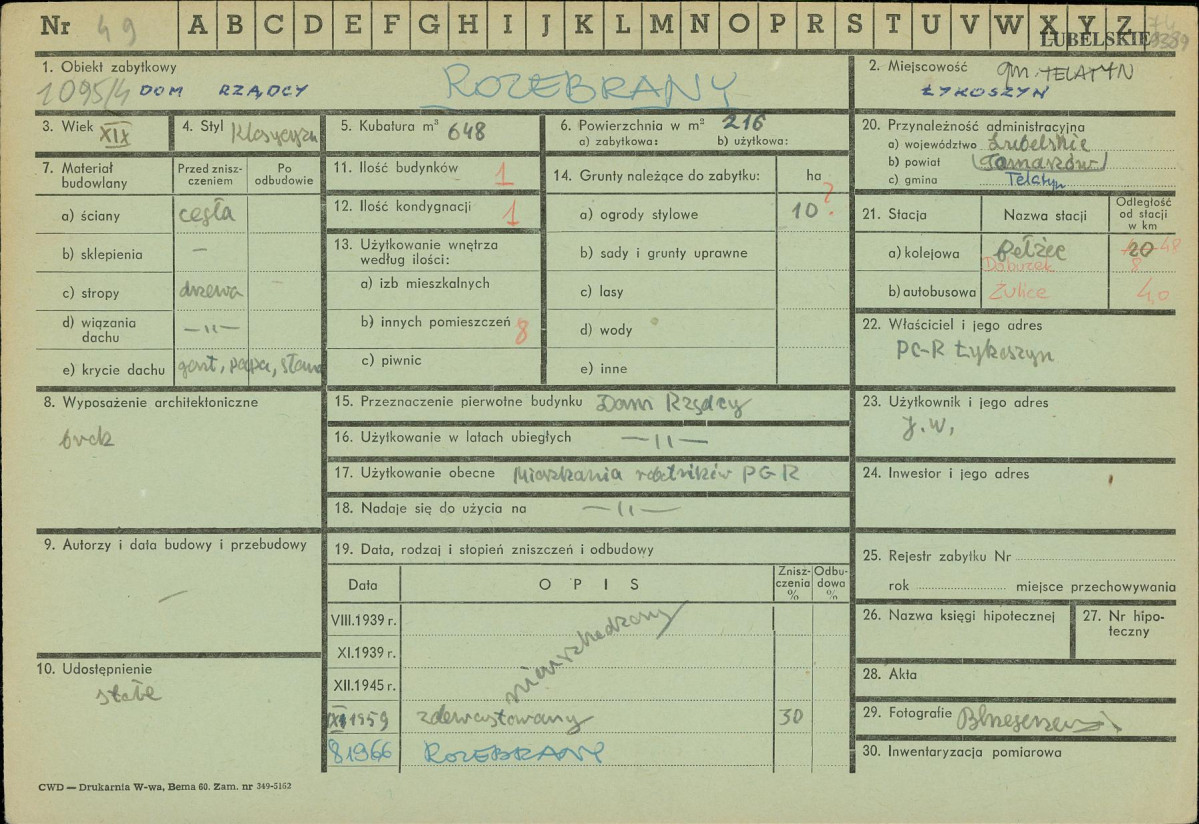 Nr 49 A B C D E F G H I J K L M N O P R S T U V W X Y Z
LUBELSKIE
1. Obiekt zabytkowy
1095/4 DOM RZĄDCY ROZEBRANY
2. Miejscowość gm. TELATYN
ŁYKOSZYN
3. Wiek XIX
4. Styl Klasycyzm
5. Kubatura m³ 648
6. Powierzchnia w m² 216
a) zabytkowa: b) użytkowa:
7. Materiał budowlany
Przed znisz-
czeniem
Po
odbudowie
a) ściany cegła
b) sklepienia —
c) stropy drzewo -
d) wiązania
dachu —"—
e) krycie dachu gont, papa, słoma
8. Wyposażenie architektoniczne
brak
9. Autorzy i data budowy i przebudowy
—
10. Udostępnienie
słabe
11. Ilość budynków 1
12. Ilość kondygnacji 1
13. Użytkowanie wnętrza
według ilości:
a) izb mieszkalnych
b) innych pomieszczeń 8
c) piwnic
14. Grunty należące do zabytku: ha
a) ogrody stylowe 10 ?
b) sady i grunty uprawne
c) lasy
d) wody
e) inne
15. Przeznaczenie pierwotne budynku Dom Rządcy
16. Użytkowanie w latach ubiegłych —"—
17. Użytkowanie obecne Mieszkania rolników PGR
18. Nadaje się do użycia na —"—
19. Data, rodzaj i stopień zniszczeń i odbudowy
Data OPIS
Znisz-
czenia
%
Odbu-
dowa
%
VIII.1939 r.
XI.1939 r.
XII.1945 r.
nieuszkodzony
XI 1959 zdewastowany 30
8 1966 ROZEBRANY
20. Przynależność administracyjna
a) województwo Lubelskie
b) powiat (Tomaszów)
c) gmina Telatyn
21. Stacja Nazwa stacji
Odległość
od stacji
w km
a) kolejowa Bełżec 20 48
Dobużek 8
b) autobusowa Żulice 4,0
22. Właściciel i jego adres
PG-R Łykoszyn
23. Użytkownik i jego adres
J.W,
24. Inwestor i jego adres
25. Rejestr zabytku Nr
rok miejsce przechowywania
26. Nazwa księgi hipotecznej
27. Nr hipo-
teczny
28. Akta
29. Fotografie
30. Inwentaryzacja pomiarowa
CWD — Drukarnia W-wa, Bema 60. Zam. nr 349-5162